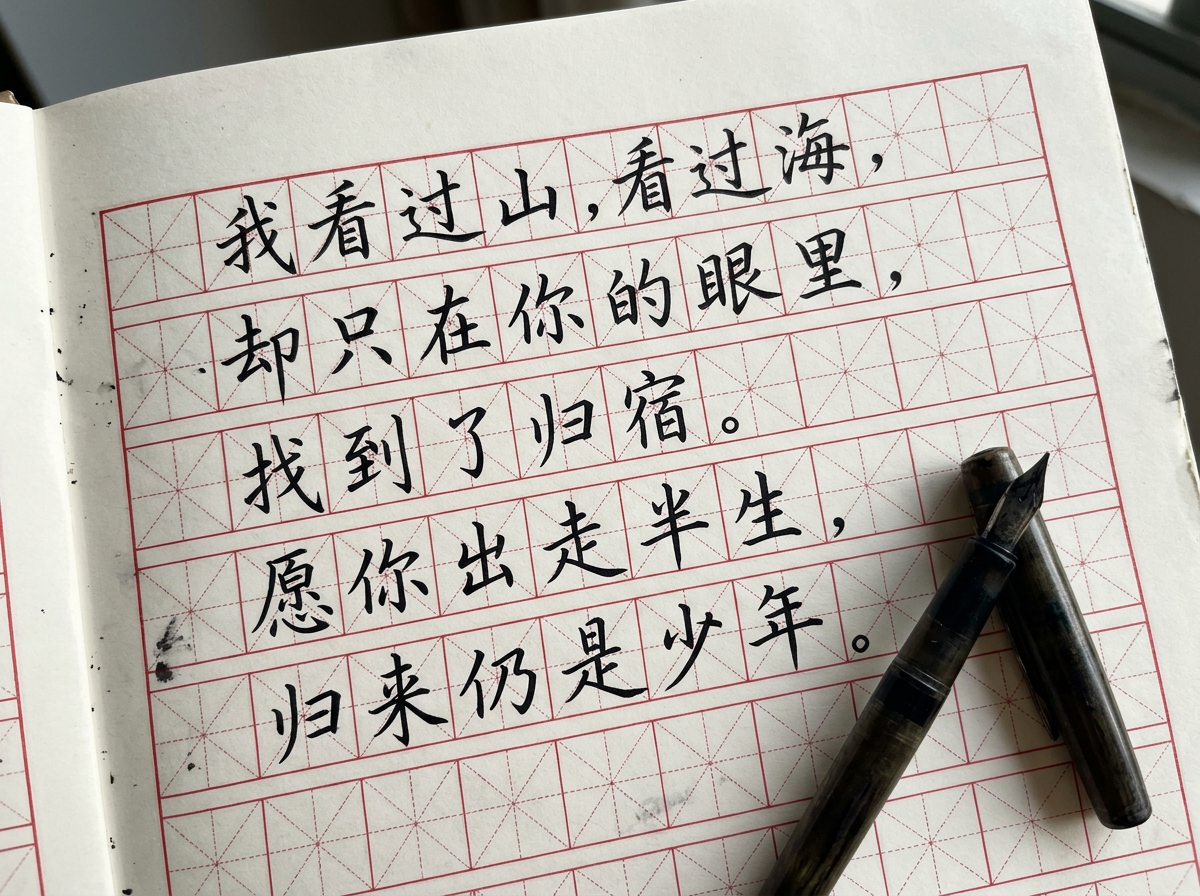 我看过山,看过海,
却只在你的眼里,
找到了归宿。
愿你出走半生,
归来仍是少年。